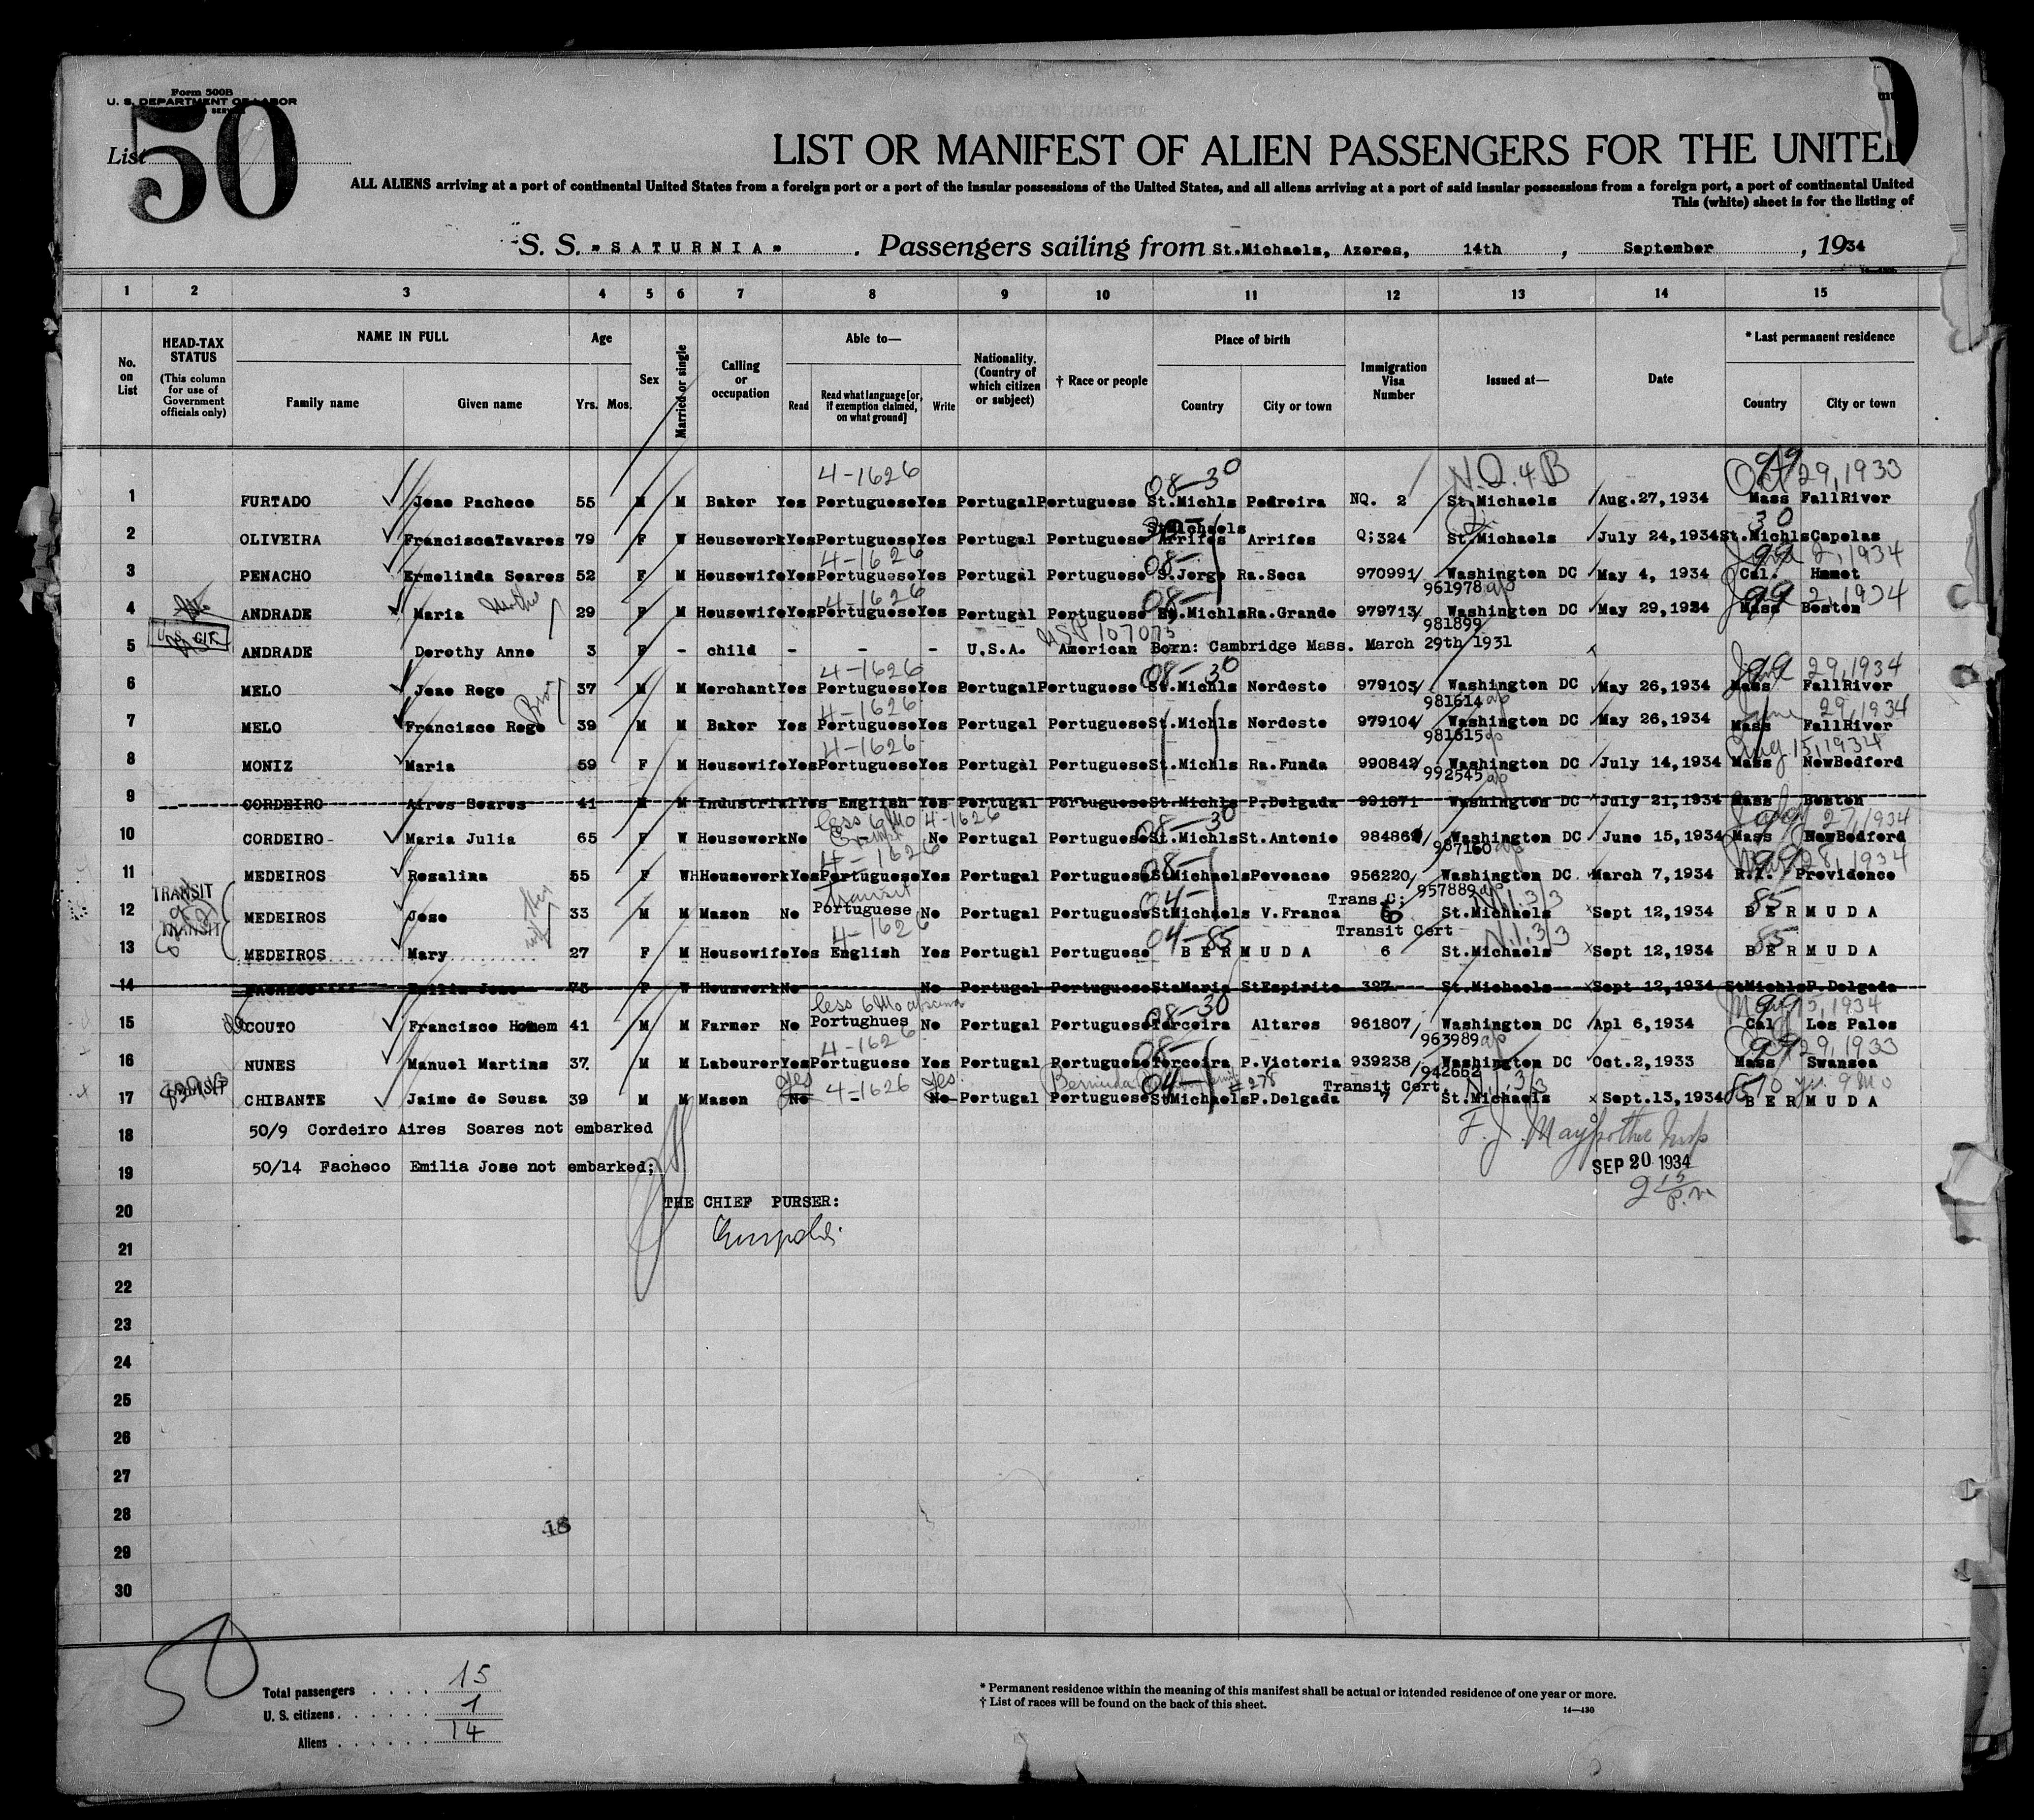 Form 500B
U. S. DEPARTMENT OF LABOR
List 50
LIST OR MANIFEST OF ALIEN PASSENGERS FOR THE UNITED
ALL ALIENS arriving at a port of continental United States from a foreign port or a port of the insular possessions of the United States, and all aliens arriving at a port of said insular possessions from a foreign port, a port of continental United
This (white) sheet is for the listing of
S. S. "SATURNIA" . Passengers sailing from St.Michaels, Azores, 14th , September , 1934
1 2 3 4 5 6 7 8 9 10 11 12 13 14 15
No. on List
HEAD-TAX STATUS (This column for use of Government officials only)
NAME IN FULL Family name Given name
Age Yrs. Mos.
Sex
Married or single
Calling or occupation
Able to— Read Read what language [or, if exemption claimed, on what ground] Write
Nationality. (Country of which citizen or subject)
† Race or people
Place of birth Country City or town
Immigration Visa Number
Issued at—
Date
* Last permanent residence Country City or town
4-1626 08-30 N.Q.4B 99 Oct 29,1933
1 FURTADO Joao Pacheco 55 M M Baker Yes Portuguese Yes Portugal Portuguese St.Michls Pedreira NQ. 2 St.Michaels Aug.27,1934 Mass FallRiver
StMichaels 30
2 OLIVEIRA FranciscaTavares 79 F W Housework Yes Portuguese Yes Portugal Portuguese Arrifes Arrifes Q;324 St.Michaels July 24,1934 St.Michls Capelas
4-1626 08- 99 2,1934
3 PENACHO Ermelinda Soares 52 F M Housewife Yes Portuguese Yes Portugal Portuguese S.Jorge Ra.Seca 970991/ Washington DC May 4, 1934 Cal. Hemet
961978
4-1626 08- 99 2,1934
4 ANDRADE Maria Mother 29 F M Housewife Yes Portuguese Yes Portugal Portuguese St.Michls Ra.Grande 979713/ Washington DC May 29, 1934 Mass Boston
981899
U.S. CIT. USP 107075
5 ANDRADE Dorothy Anne 3 F - child - - - U.S.A. American Born: Cambridge Mass. March 29th 1931
4-1626 08-30 99 June 29,1934
6 MELO Joao Rego 37 M M Merchant Yes Portuguese Yes Portugal Portuguese St.Michls Nordeste 979103/ Washington DC May 26,1934 Mass FallRiver
981614
4-1626 June 29,1934
7 MELO Francisco Rego 39 M M Baker Yes Portuguese Yes Portugal Portuguese St.Michls Nordeste 979104/ Washington DC May 26,1934 Mass FallRiver
981615
4-1626 Aug 15,1934
8 MONIZ Maria 59 F M Housewife Yes Portuguese Yes Portugal Portuguese St.Michls Ra.Funda 990842/ Washington DC July 14,1934 Mass NewBedford
992545
9 CORDEIRO Aires Soares 41 M M Industrial Yes English Yes Portugal Portuguese St.Michls P.Delgada 991871 Washington DC July 21,1934 Mass Boston
less 6 Mo 4-1626 08-30 27,1934
10 CORDEIRO- Maria Julia 65 F W Housework No No Portugal Portuguese St.Michls St.Antonio Washington DC June 15,1934 Mass NewBedford
987160
4-1626 08- 28,1934
11 MEDEIROS Rosalina 55 F WH Housework Yes Portuguese Yes Portugal Portuguese StMichaels Povoacao 956220/ Washington DC March 7,1934 R.I. Providence
957889
TRANSIT transit 04- Trans.C; N.I.3/3 85
12 MEDEIROS Jose 33 M M Mason No Portuguese No Portugal Portuguese StMichaels V.Franca 6 St.Michaels Sept 12,1934 BERMUDA
TRANSIT 4-1626 04-85 Transit Cert N.I.3/3 85
13 MEDEIROS Mary 27 F M Housewife Yes English Yes Portugal Portuguese BERMUDA 6 St.Michaels Sept 12,1934 BERMUDA
14 PACHECO Emilia Jose 73 F W Housework No No Portugal Portuguese StaMaria StEspirito 327 St.Michaels Sept 12,1934 StMichls P.Delgada
less 6 Mo 08-30 99 15,1934
15 COUTO Francisco Homem 41 M M Farmer No Portughues No Portugal Portuguese Terceira Altares 961807/ Washington DC Apl 6,1934 Cal Los Palos
963989
4-1626 08- 99 29,1933
16 NUNES Manuel Martins 37 M M Labourer Yes Portuguese Yes Portugal Portuguese Terceira P.Victoria 939238/ Washington DC Oct.2,1933 Mass Swansea
942662
TRANSIT Yes 4-1626 Yes Bermuda 04- #278 Transit Cert. N.I.3/3 85 10 yr. 9 Mo
17 CHIBANTE Jaime de Sousa 39 M M Mason No - No Portugal Portuguese StMichaels P.Delgada 7 St.Michaels Sept.13,1934 BERMUDA
18 50/9 Cordeiro Aires Soares not embarked
19 50/14 Pacheco Emilia Jose not embarked;
SEP 20 1934
2 15 P.M
20 THE CHIEF PURSER:
21
22
23
24
25
26
27
28
18
29
30
50
Total passengers . . . . 15
U. S. citizens . . . . . 1
Aliens . . . . . . 14
* Permanent residence within the meaning of this manifest shall be actual or intended residence of one year or more.
† List of races will be found on the back of this sheet.
14—430